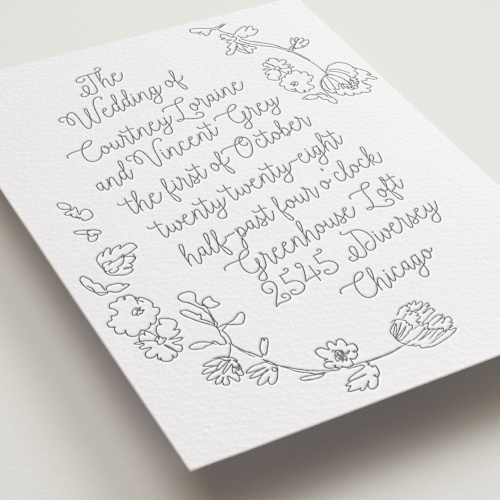 The
Wedding of
Courtney Loraine
and Vincent Grey
the first of October
twenty twenty-eight
half-past four o'clock
Greenhouse Loft
2545 Diversey
Chicago